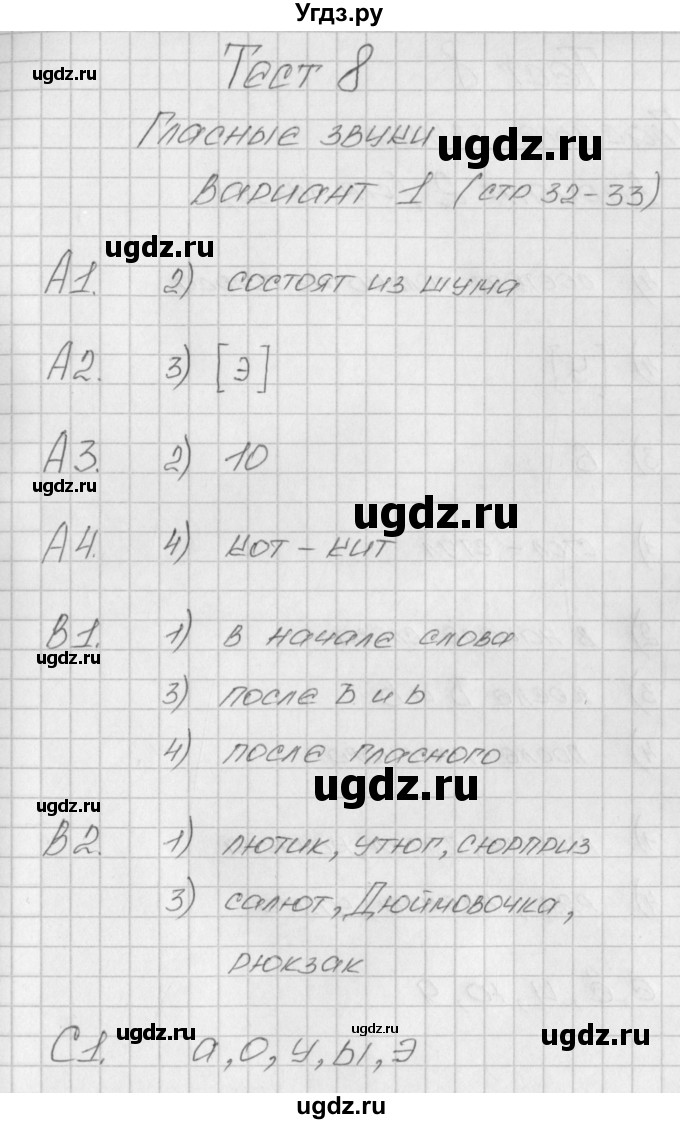 Угдз.ру
ugdz.ru
Тест 8
Гласные звуки
ugdz.ru
Вариант 1 (стр 32-33)
ugdz.ru
А1. 2) состоят из шума
А2. 3) [э]
А3. 2) 10
ugdz.ru
ugdz.ru
А4. 4) кот - кит
В1. 1) в начале слова
ugdz.ru
3) после ъ и ь
4) после гласного
ugdz.ru
ugdz.ru
В2. 1) лютик, утюг, сюрприз
3) салют, Дюймовочка,
рюкзак
ugdz.ru
ugdz.ru
ugdz.ru
С1. а, о, у, ы, э
ugdz.ru